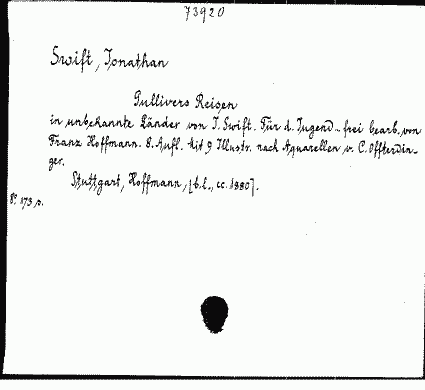 73920
Swift, Jonathan
Gullivers Reisen
in unbekannte Länder von J. Swift. Für d. Jugend frei bearb. von
Franz Hoffmann. 8. Aufl. Mit 9 Illustr. nach Aquarellen v. C. Offterdin-
ger.
Stuttgart, Hoffmann, [b.l., cc. 1880].
8°. 173 s.